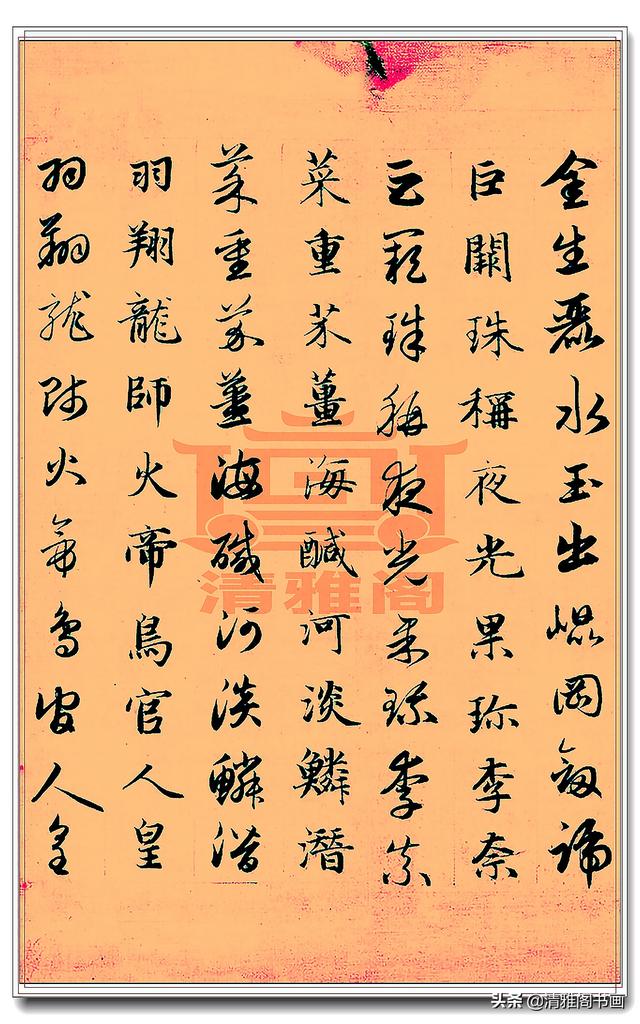 金生麗水玉出崐岡劍號
巨闕珠稱夜光果珎李柰
巨闕珠稱夜光果珎李柰
菜重芥薑海醎河淡鱗潛
菜重芥薑海醎河淡鱗潛
羽翔龍師火帝鳥官人皇
羽翔龍師火帝鳥官人皇
清雅阁
头条 @清雅阁书画